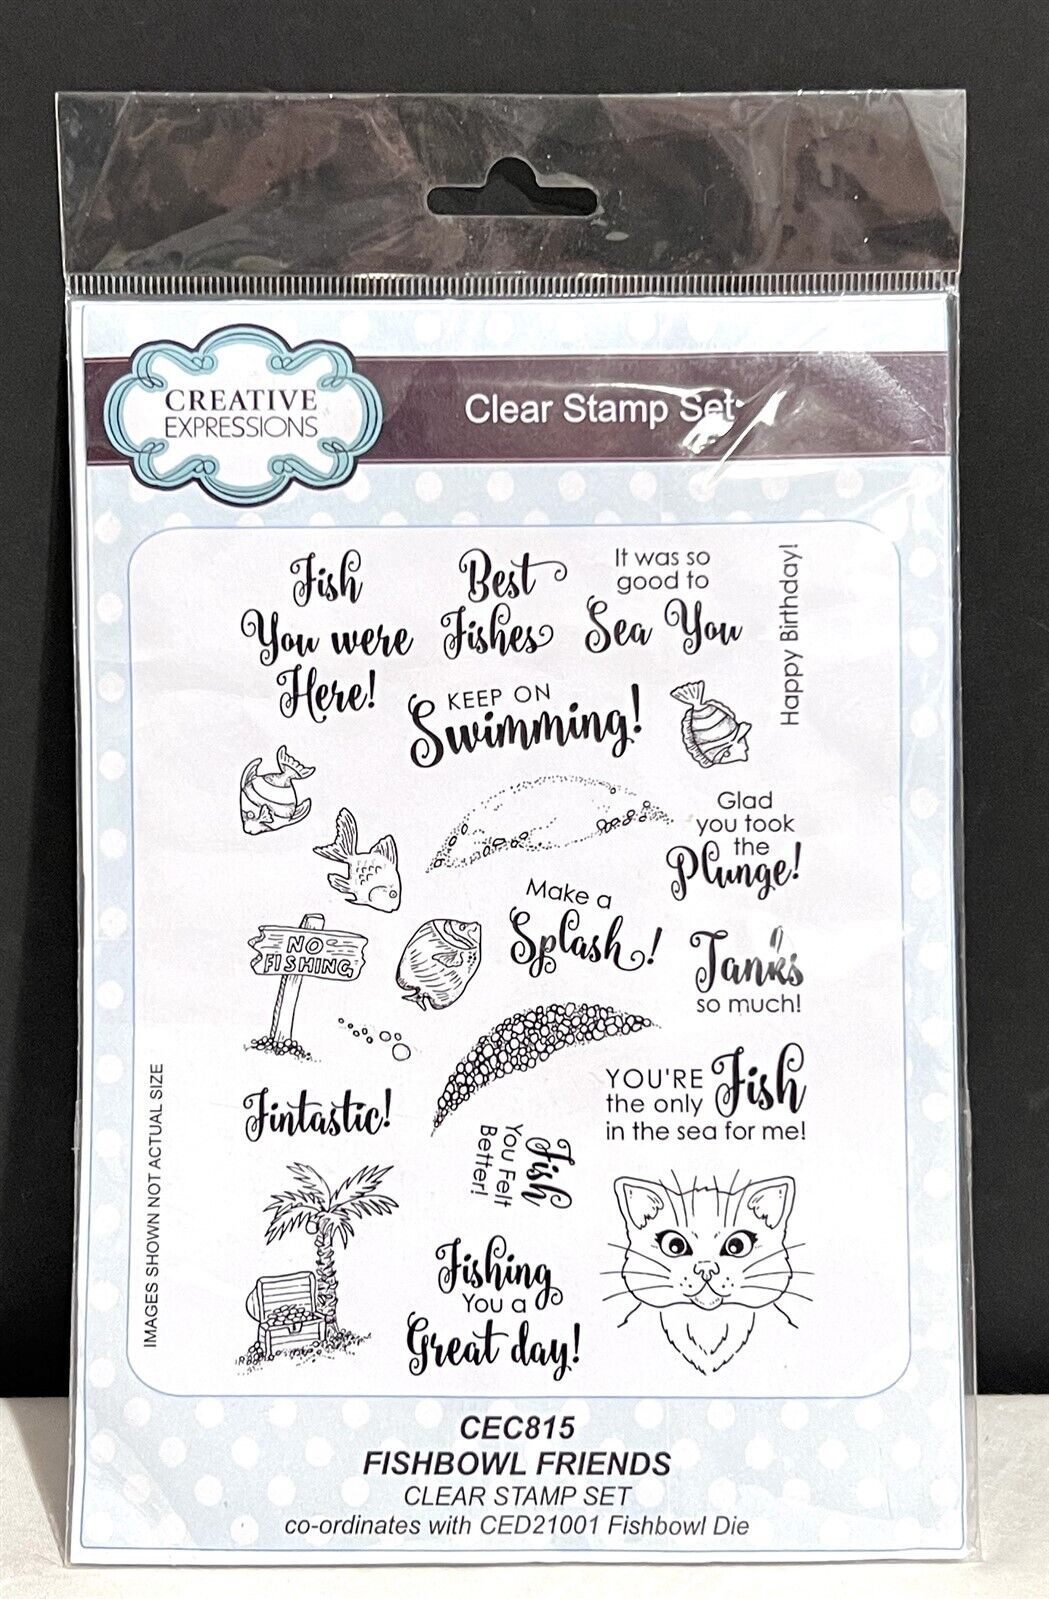 CREATIVE
EXPRESSIONS
Clear Stamp Set
Fish
You were
Here!
Best
Fishes
It was so
good to
Sea You
Happy Birthday!
KEEP ON
Swimming!
Glad
you took
the
Plunge!
Make a
Splash!
NO
FISHING
Tanks
so much!
Fintastic!
YOU'RE
the only
Fish
in the sea for me!
Fish
You Felt
Better!
Fishing
You a
Great day!
IMAGES SHOWN NOT ACTUAL SIZE
CEC815
FISHBOWL FRIENDS
CLEAR STAMP SET
co-ordinates with CED21001 Fishbowl Die